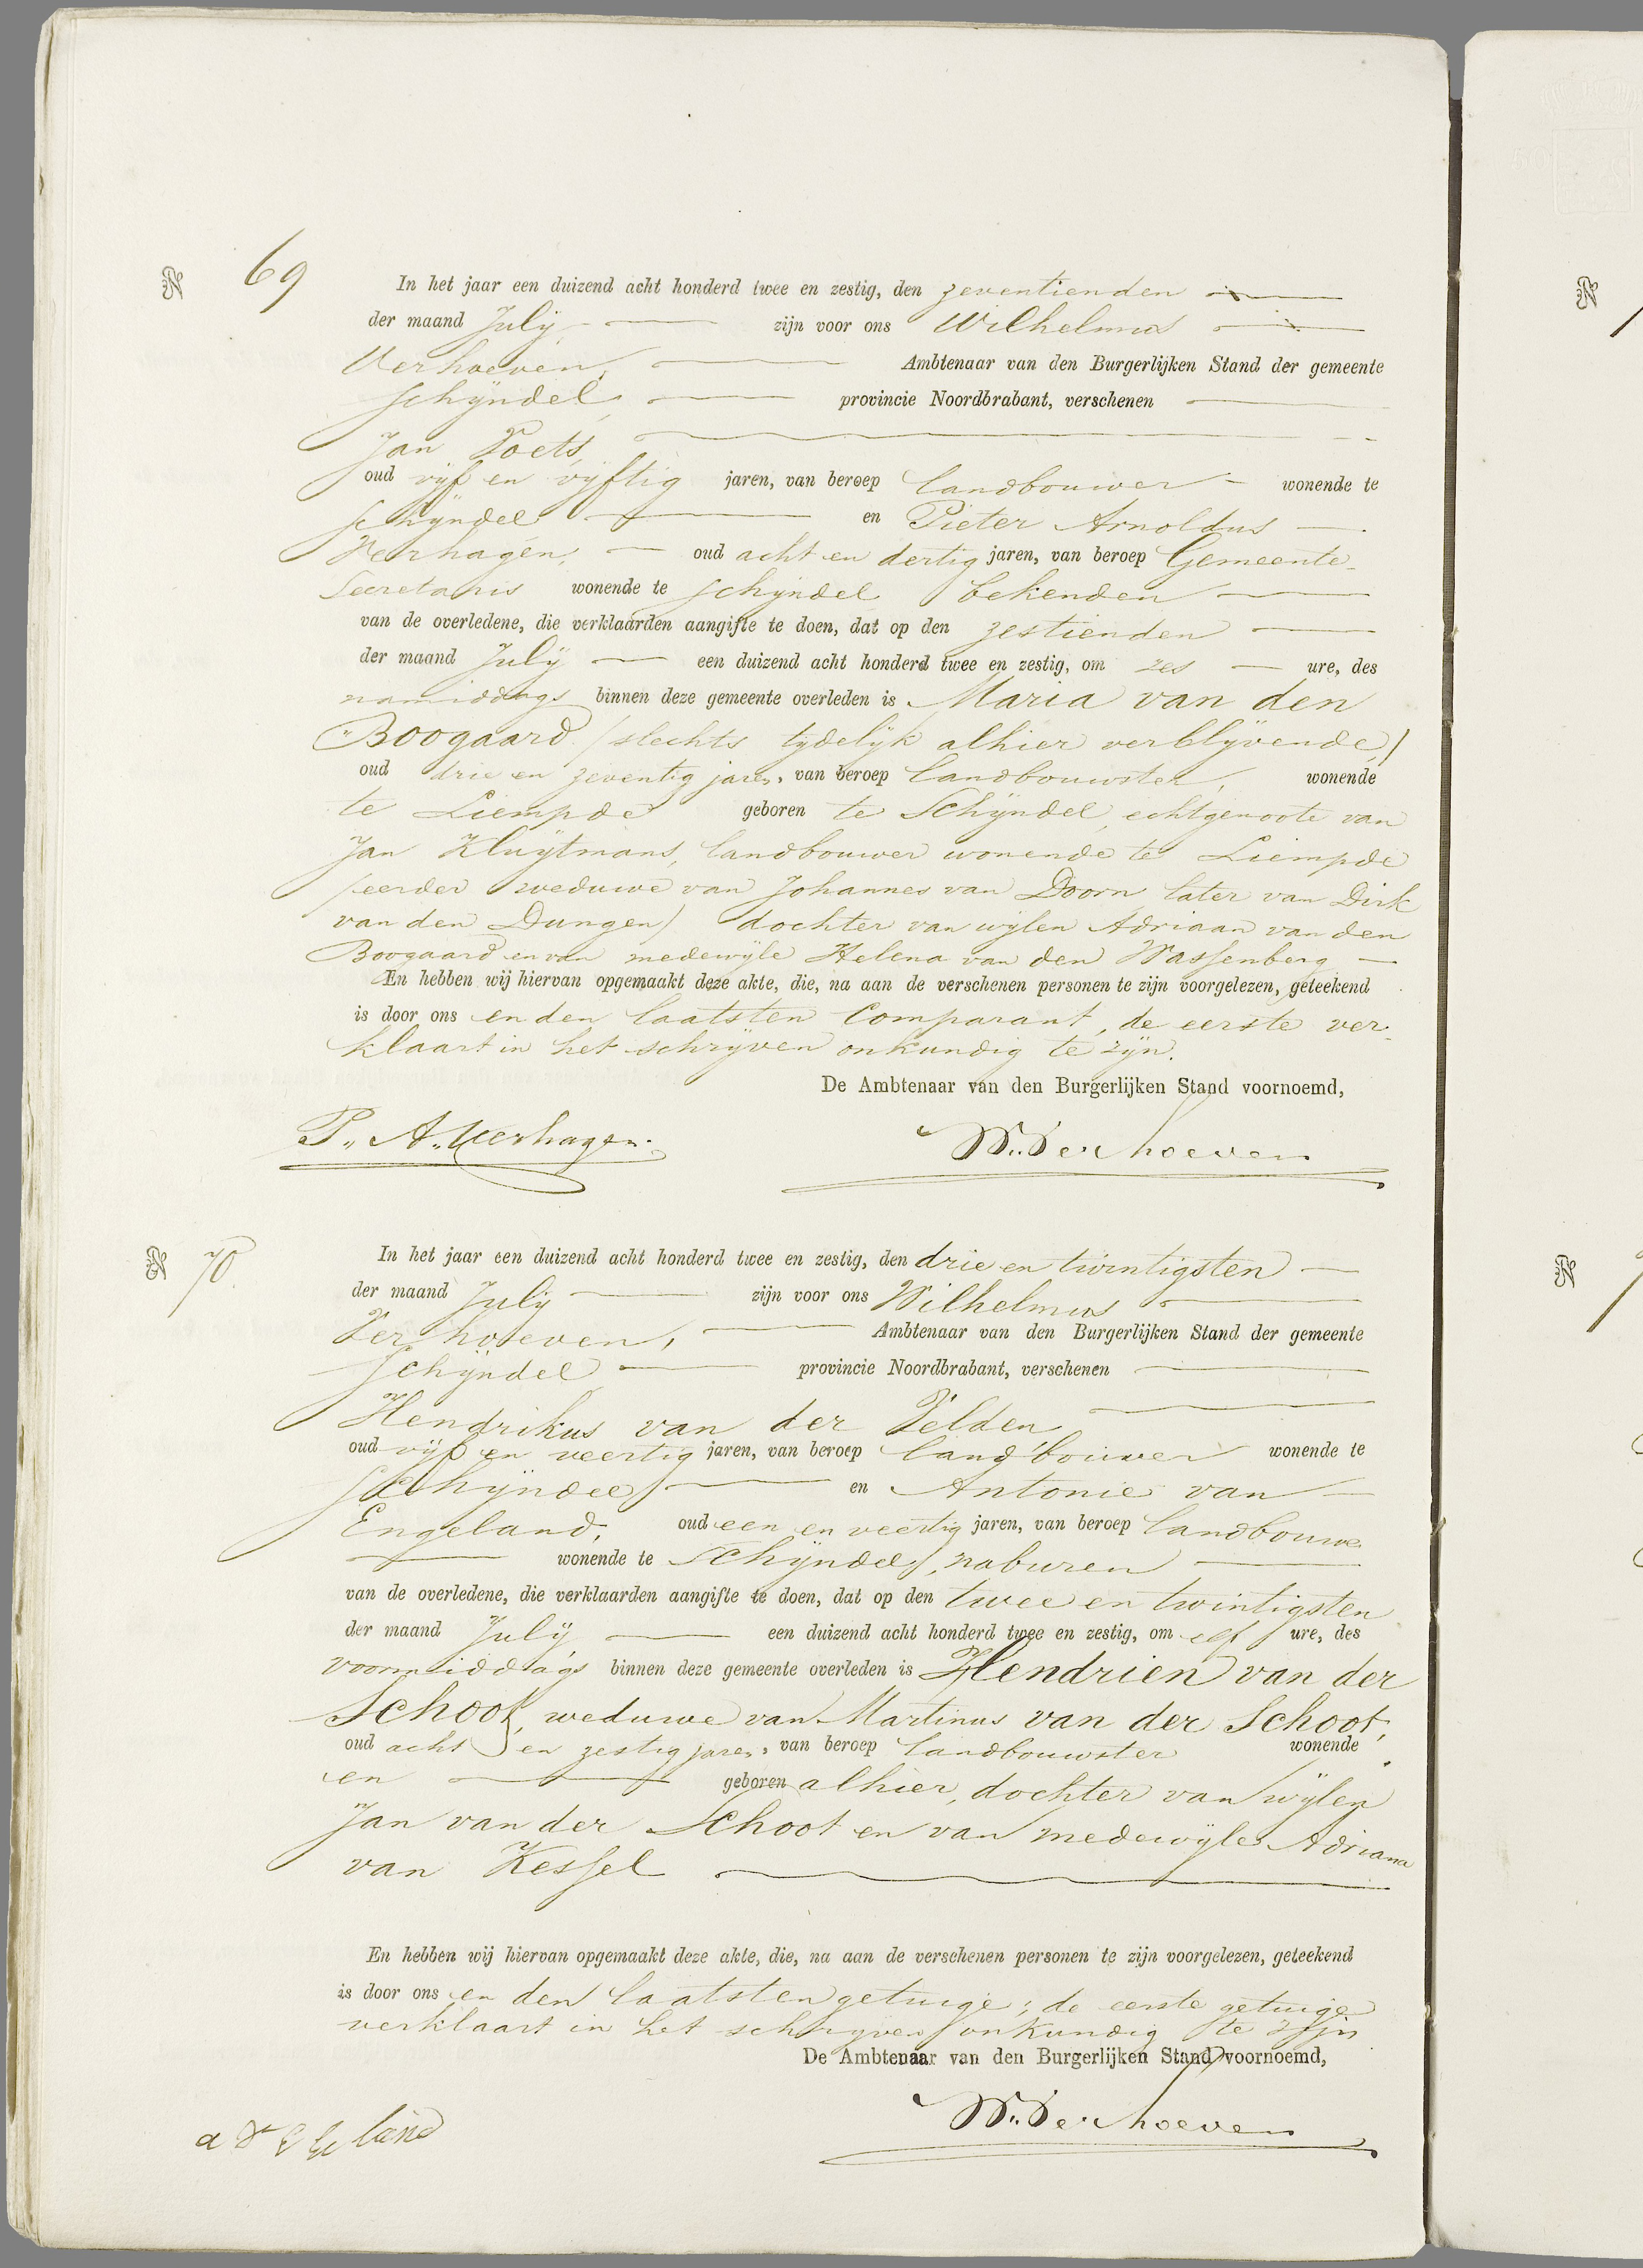 N 69
In het jaar een duizend acht honderd twee en zestig, den zeventienden
der maand July zijn voor ons Wilhelmus
Verhoeven, Ambtenaar van den Burgerlijken Stand der gemeente
Schÿndel, provincie Noordbrabant, verschenen
Jan Poets,
oud vÿf en vÿftig jaren, van beroep landbouwer wonende te
Schÿndel en Pieter Arnoldus
Verhagen, oud acht en dertig jaren, van beroep Gemeente-
Secretaris wonende te Schÿndel bekenden
van de overledene, die verklaarden aangifte te doen, dat op den zestienden
der maand Julÿ een duizend acht honderd twee en zestig, om zes ure, des
namiddags binnen deze gemeente overleden is Maria van den
Boogaard (slechts tÿdelÿk alhier verblÿvende)
oud drie en zeventig jaren, van beroep landbouwster, wonende
te Liempde geboren te Schÿndel, echtgenoote van
Jan Kluÿtmans, landbouwer wonende te Liempde
(eerder weduwe van Johannes van Doorn later van Dirk
van den Dungen) dochter van wÿlen Adriaan van den
Boogaard en van medewÿle Helena van den Wassenberg
En hebben wij hiervan opgemaakt deze akte, die, na aan de verschenen personen te zijn voorgelezen, geteekend
is door ons en den laatsten Comparant, de eerste ver-
klaart in het schrÿven onkundig te zÿn.
De Ambtenaar van den Burgerlijken Stand voornoemd,
P. A. Verhagen. W. Verhoeven
N 70.
In het jaar een duizend acht honderd twee en zestig, den drie en twintigsten
der maand Julÿ zijn voor ons Wilhelmus
Verhoeven, Ambtenaar van den Burgerlijken Stand der gemeente
Schÿndel provincie Noordbrabant, verschenen
Hendrikus van der Velden
oud vÿf en veertig jaren, van beroep landbouwer wonende te
Schÿndel en Antonie van
Engeland, oud een en veertig jaren, van beroep landbouwer
wonende te Schÿndel, naburen
van de overledene, die verklaarden aangifte te doen, dat op den twee en twintigsten
der maand Julÿ een duizend acht honderd twee en zestig, om elf ure, des
voormiddags binnen deze gemeente overleden is Hendrien van der
Schoot, weduwe van Martinus van der Schoot,
oud acht en zestig jaren, van beroep landbouwster wonende
en geboren alhier, dochter van wÿlen
Jan van der Schoot en van medewÿle Adriana
van Kessel
En hebben wij hiervan opgemaakt deze akte, die, na aan de verschenen personen te zijn voorgelezen, geteekend
is door ons en den laatsten getuige; de eerste getuige
verklaart in het schryven onkundig te zijn
De Ambtenaar van den Burgerlijken Stand voornoemd,
W. Verhoeven
N
N